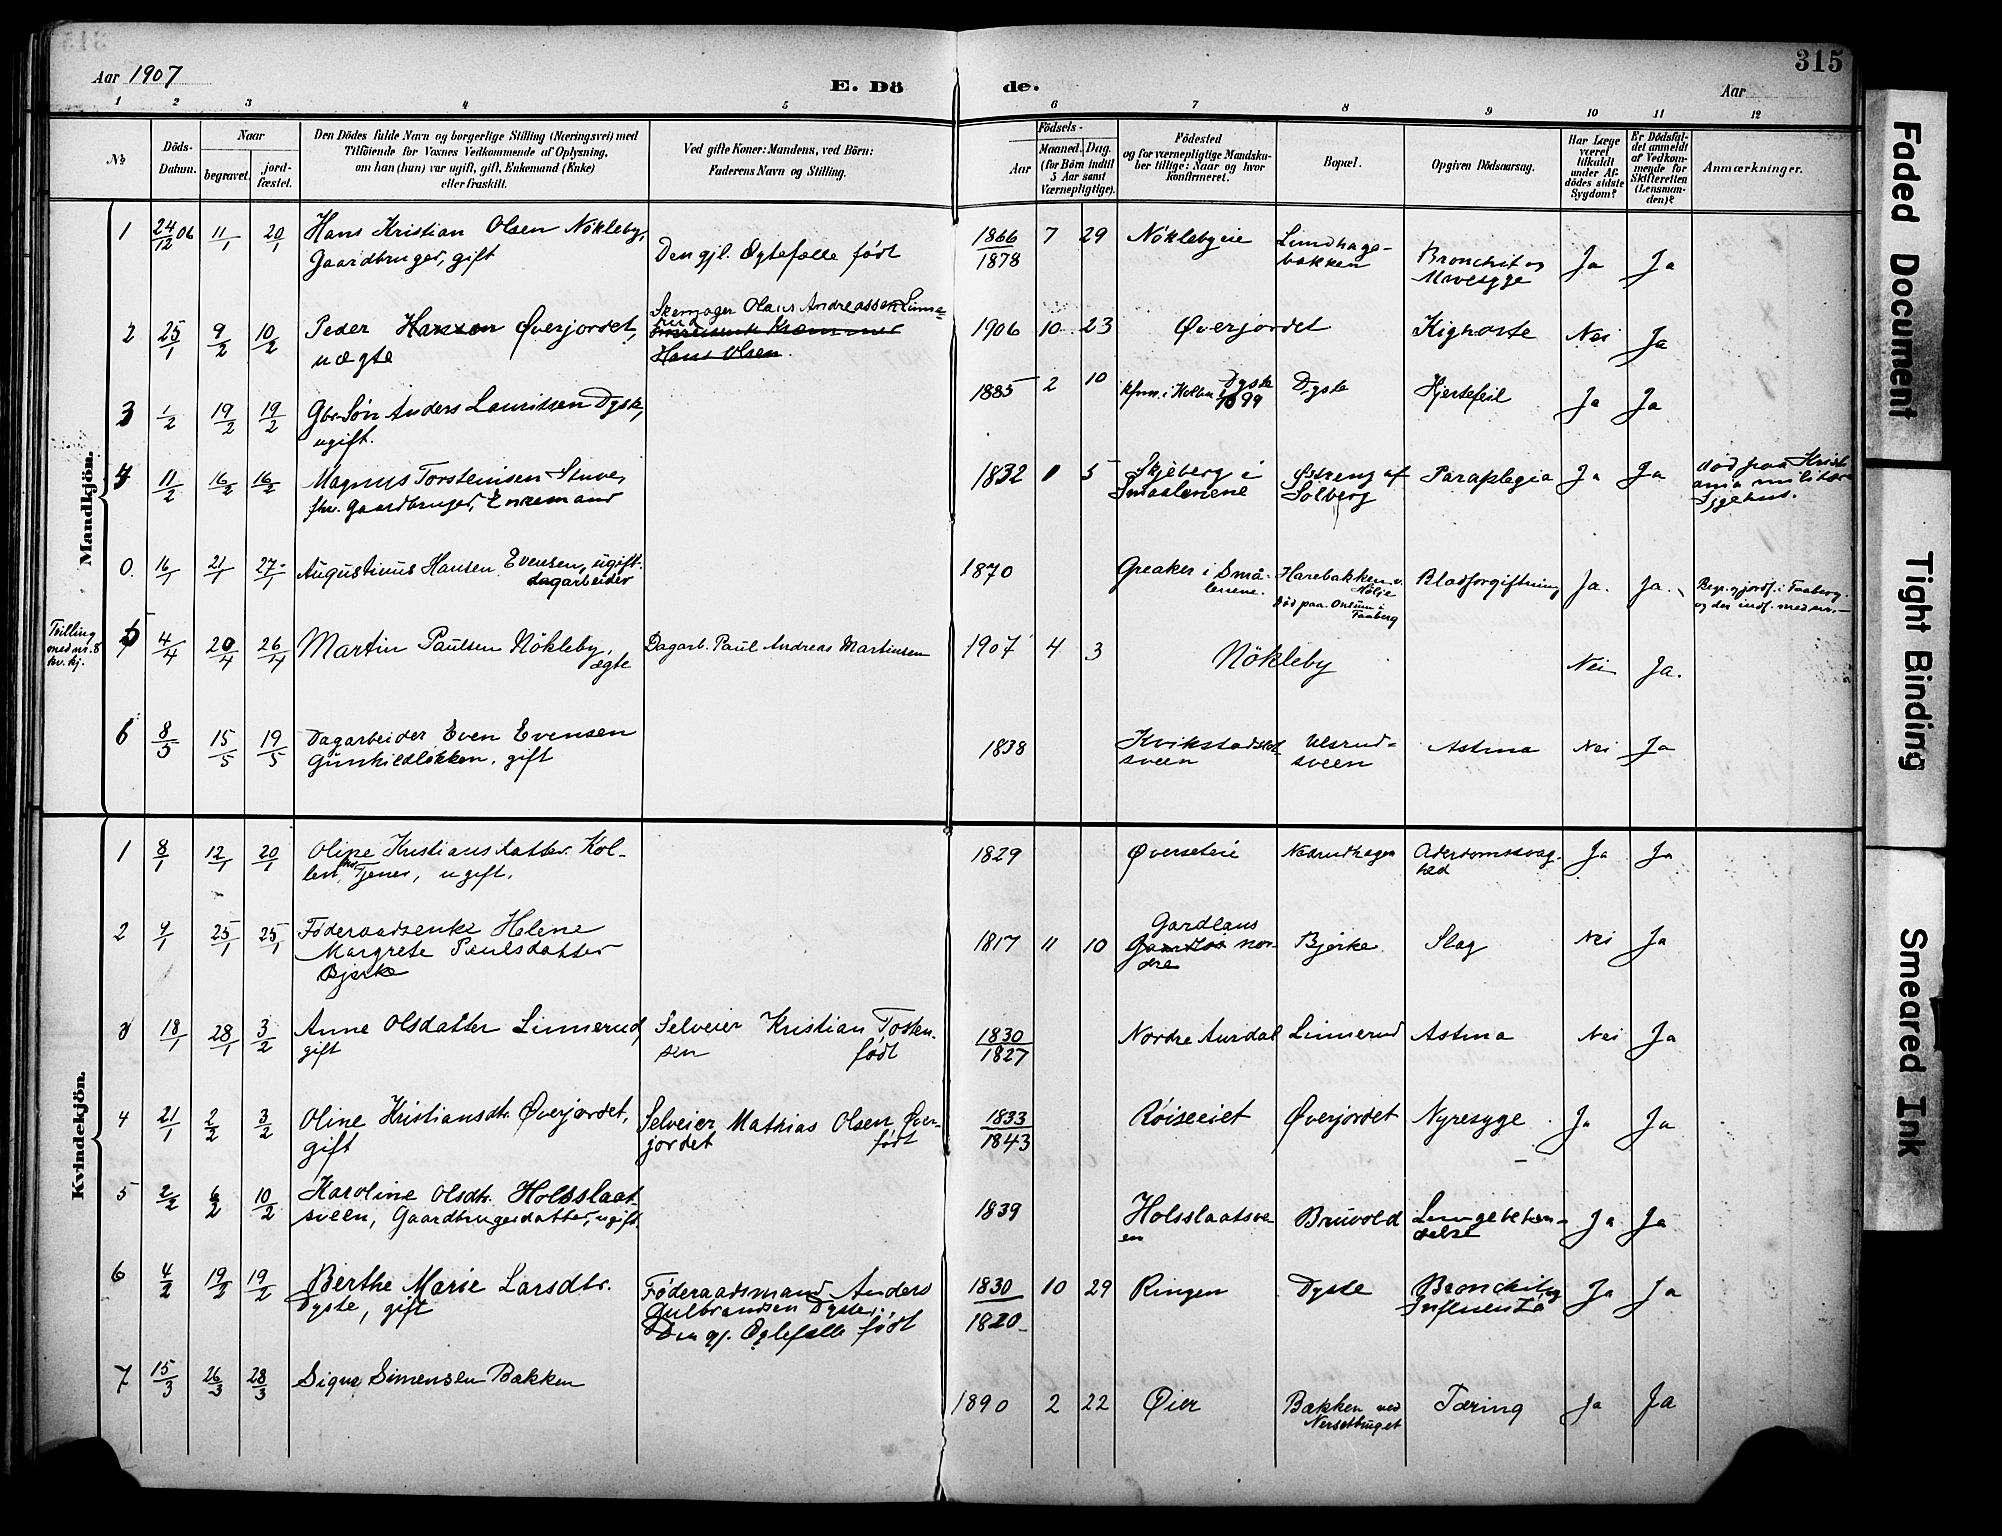 315
Aar 1907
E. Dö de.
Aar
1 2 3 4 5 6 7 8 9 10 11 12
No
Döds-
Datum.
Naar
begravet.
jord-
fæstet.
Den Dödes fulde Navn og borgerlige Stilling (Næringsvei) med
Tilföiende for Voxnes Vedkommende af Oplysning,
om han (hun) var ugift, gift, Enkemand (Enke)
eller fraskilt.
Ved gifte Koner: Mandens, ved Börn:
Faderens Navn og Stilling.
Födsels-
Aar
Maaned. Dag.
(for Börn indtil
5 Aar samt
Værnepligtige).
Födested
og for værnepligtige Mandska-
ber tillige: Naar og hvor
konfirmeret.
Bopæl.
Opgiven Dödsaarsag.
Har Læge
været
tilkaldt
under Af-
dödes sidste
Sygdom?
Er Dödsfal-
det anmeldt
af Vedkom-
mende for
Skifteretten
(Lensman-
den)?
Anmærkninger.
Mandkjön.
1 24/12 06 11/1 20/1 Hans Kristian Olsen Nökleby,
Gaardbruger, gift
Den gjl. Ægtefælle födt
1866 7 29
1878
Nöklebyeie
Lundhage-
bakken
Bronchit og
Mavesyge
Ja Ja
2 25/1 9/2 10/2 Peder Hansen Øverjordet,
uægte
Olaus Andreassen Linne-
rud
Hans Olsen.
1906 10 23 Øverjordet Kighoste Nei Ja
3 1/2 19/2 19/2 Gbr. Søn Anders Lauritsen Dyste,
ugift.
1885 2 10 Dyste
kfm. i Kolbu 1899
Dyste Hjertefeil Ja Ja
4 11/2 16/2 16/2 Magnus Torsteinsen Stuve,
fhv. Gaardbruger, Enkemand
1832 1 5 Skjeberg i
Smaalenene
Østreng af
Solberg
Paraplegia Ja Ja
död paa Krist
ania militære
Sygehus.
0. 16/1 21/1 27/1 Augustinus Hansen Evensen, ugift.
dagarbeider
1870 Greaker i Små-
lenene.
Harebakken v.
Död paa Onsum i
Faaberg
Blodforgiftning Ja. Ja.
Begr. og jordf. i Faaberg
Tvilling
med nr. 8
kv. kj.
5 4/4 20/4 26/4 Martin Paulsen Nökleby,
ægte
Dagarb. Paul Andreas Martinsen
1907 4 3 Nökleby Nei Ja.
6 8/5 15/5 19/5 Dagarbeider Even Evensen
Gunhildløkken, gift
1838
sveen
Ulsrud-
sveen
Astma Nei Ja
Kvindekjön.
1 8/1 12/1 20/1 Oline Kristiansdatter Kol-
len, fhv. Tjener, ugift.
1829 Øverseteie Nedrudhagen Alderdomssvag-
hed
Ja Ja
2 9/1 25/1 25/1 Føderaadsenke Helene
Margrete Paulsdatter
Bjerke
1817 11 10 Gardlaus
nor-
dre
Bjerke. Slag Nei Ja
3 18/1 28/1 3/2 Anne Olsdatter Linnerud,
gift
Selveier Kristian Tosten-
sen födt
1830
1827
Nordre Aurdal Linnerud Astma Nei Ja
4 21/1 2/2 3/2 Oline Kristiansdtr. Øverjordet,
gift
Selveier Mathias Olsen Øver-
jordet födt
1833
1843
Røiseeiet Øverjordet Nyresyge Ja Ja
5 2/2 6/2 10/2 Karoline Olsdtr. Holsslaat-
sveen, Gaardbrugerdatter, ugift
1839 Holsslaatsve-
en
Bruvold Lungebetæn-
delse
Ja Ja
6 4/2 19/2 19/2 Berthe Marie Larsdtr.
Dyste, gift
Føderaadsmand Anders
Gulbrandsen Dyste.
Den gj. Ægtefælle födt
1830 10 29
1820
Ringen Dyste Bronchit og
Influenza
Ja Ja
7 15/3 26/3 28/3 Signe Simensen Bakken
1890 2 22 Øier Bakken ved
Nersetbruget
Tæring Ja Ja
Faded Document
Tight Binding
Smeared Ink